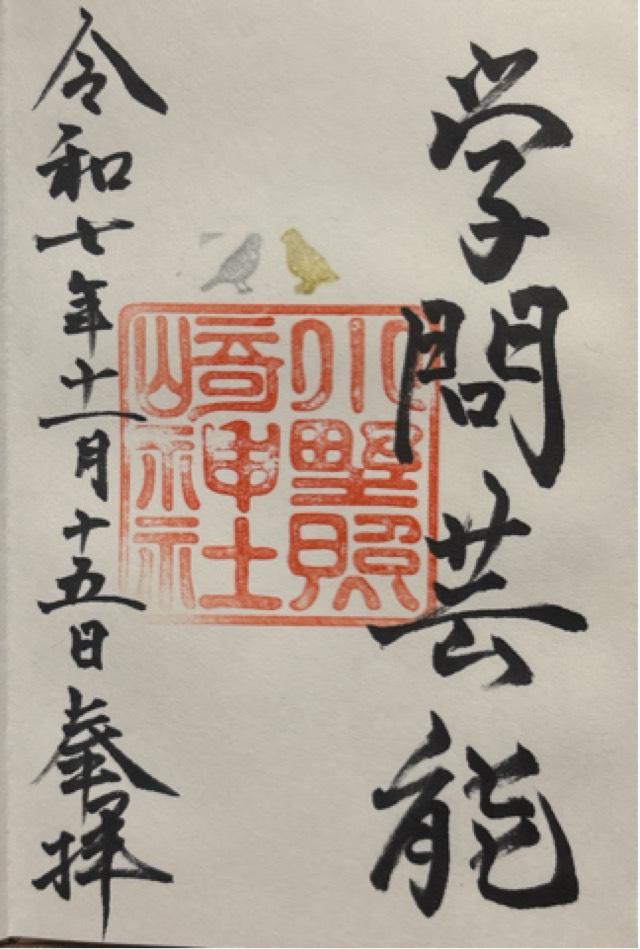 学問芸能
小野照
崎神社
令和七年十一月十五日 奉拝